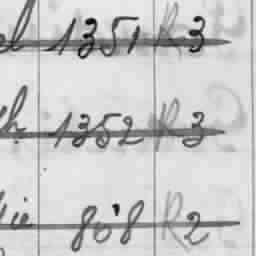 1351 R3
1352 R3
808 R2